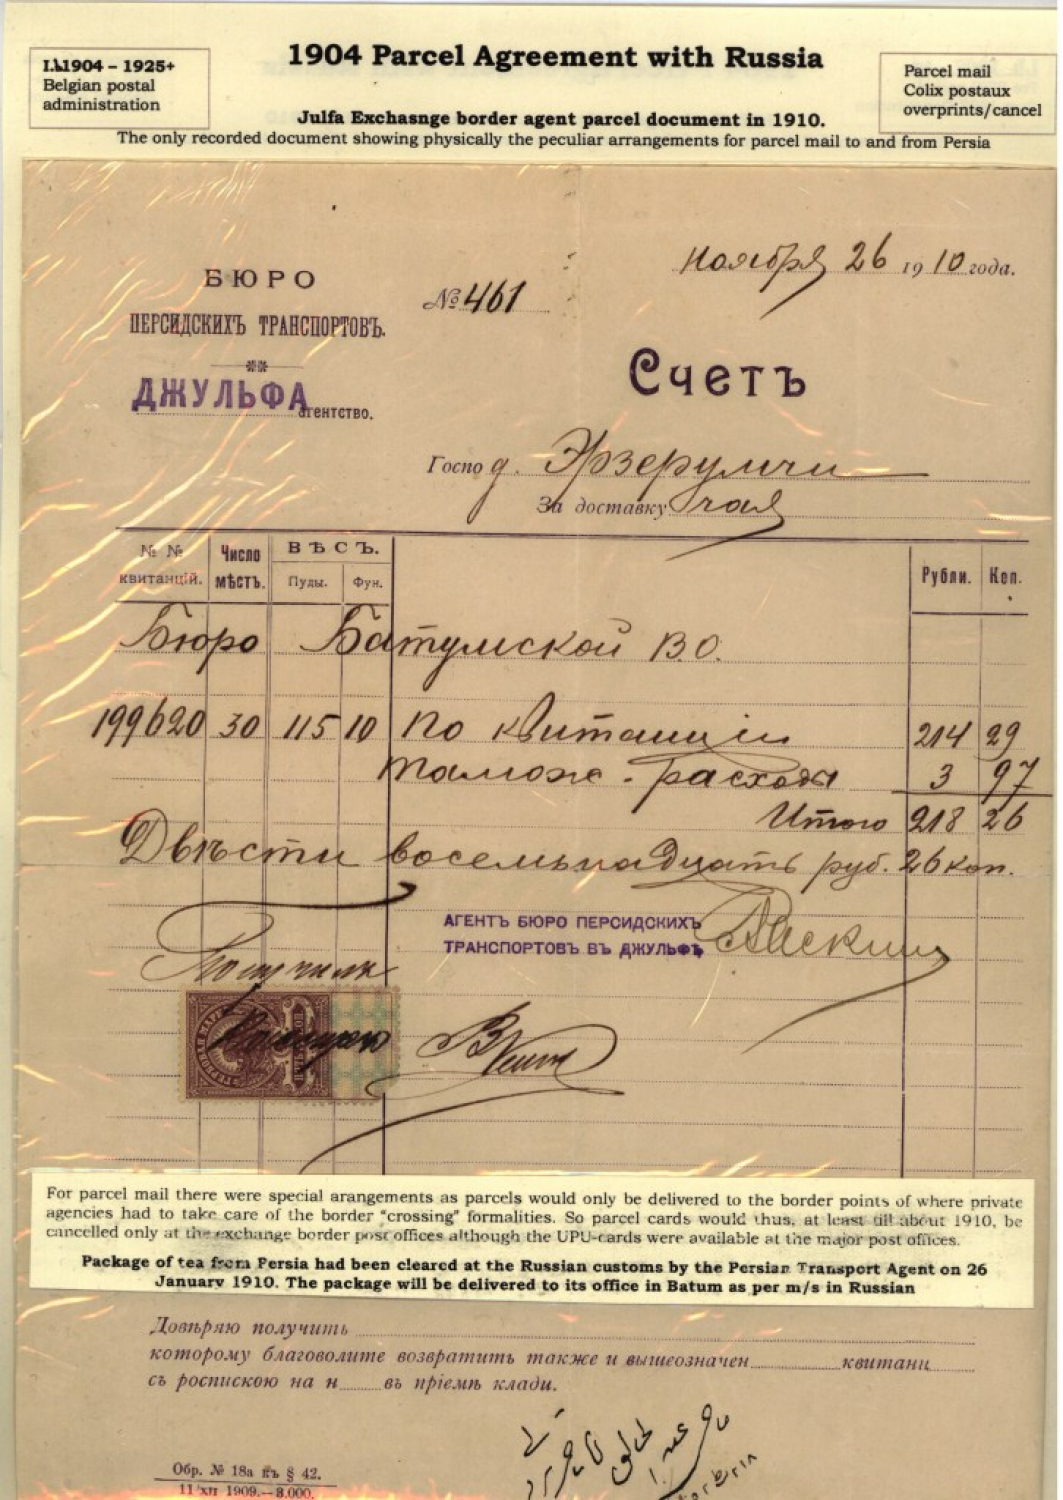 1904 Parcel Agreement with Russia
1904 – 1925+
Belgian postal
administration
Parcel mail
Colix postaux
overprints/cancel
Julfa Exchasnge border agent parcel document in 1910.
The only recorded document showing physically the peculiar arrangements for parcel mail to and from Persia
Ноября 26 1910 года.
БЮРО
ПЕРСИДСКИХЪ ТРАНСПОРТОВЪ.
№ 461
ДЖУЛЬФА агентство.
Счетъ
Господ. Эрзерумчи
За доставку чая
№ № квитанцій. Число мѣстъ. ВѢСЪ. Пуды. Фун. Рубли. Коп.
Бюро Батумской В.О.
199620 30 115 10 По квитанціи 214 29
тамож. расходы 3 97
Итого 218 26
Двѣсти восемьнадцать руб. 26 коп.
АГЕНТЪ БЮРО ПЕРСИДСКИХЪ
ТРАНСПОРТОВЪ ВЪ ДЖУЛЬФѢ
Получилъ
For parcel mail there were special arangements as parcels would only be delivered to the border points of where private
agencies had to take care of the border "crossing" formalities. So parcel cards would thus, at least till about 1910, be
cancelled only at the exchange border post offices although the UPU-cards were available at the major post offices.
Package of tea from Persia had been cleared at the Russian customs by the Persian Transport Agent on 26
January 1910. The package will be delivered to its office in Batum as per m/s in Russian
Довѣряю получить
которому благоволите возвратить также и вышеозначен квитанц
съ роспискою на н въ пріемѣ клади.
Обр. № 18а къ § 42.
11 XII 1909.—8.000.